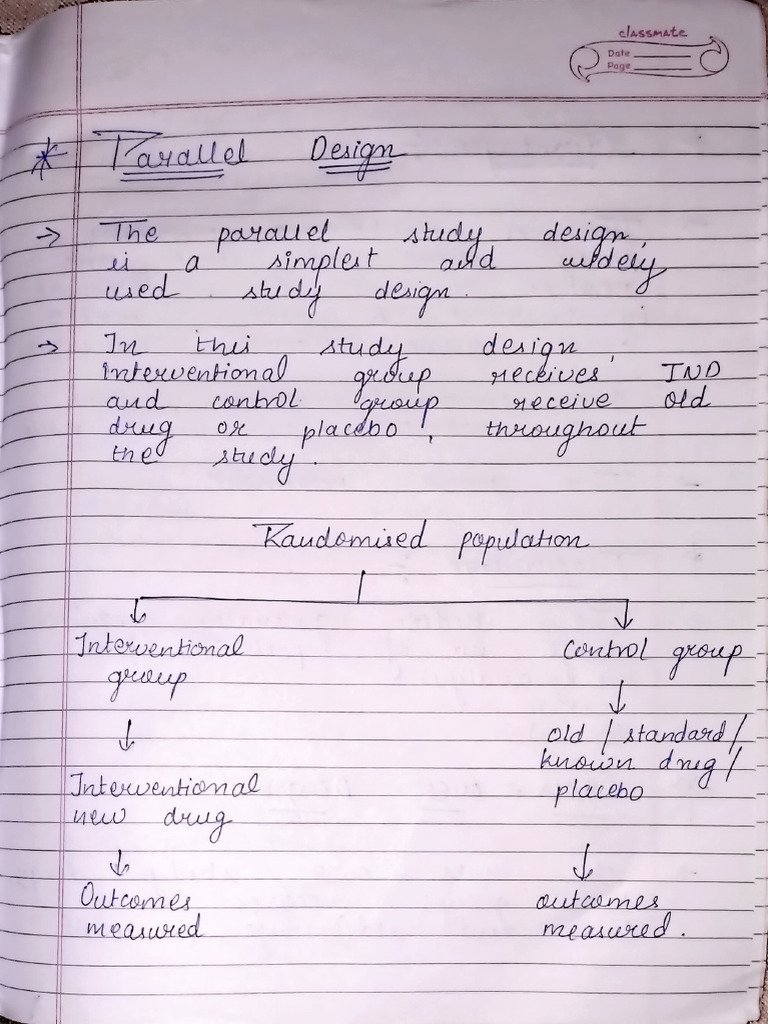 classmate
Date
Page
* Parallel Design
→ The parallel study design,
is a simplest and widely
used study design.
→ In this study design,
interventional group receives IND
and control group receive old
drug or placebo, throughout
the study.
Randomised population
Interventional group
Control group
↓
↓
Interventional new drug
old / standard /
known drug /
placebo
↓
↓
Outcomes measured
outcomes measured.